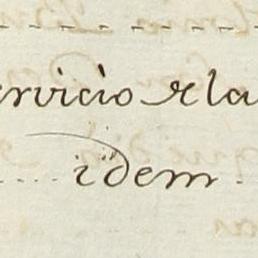 ervicio de la
idem